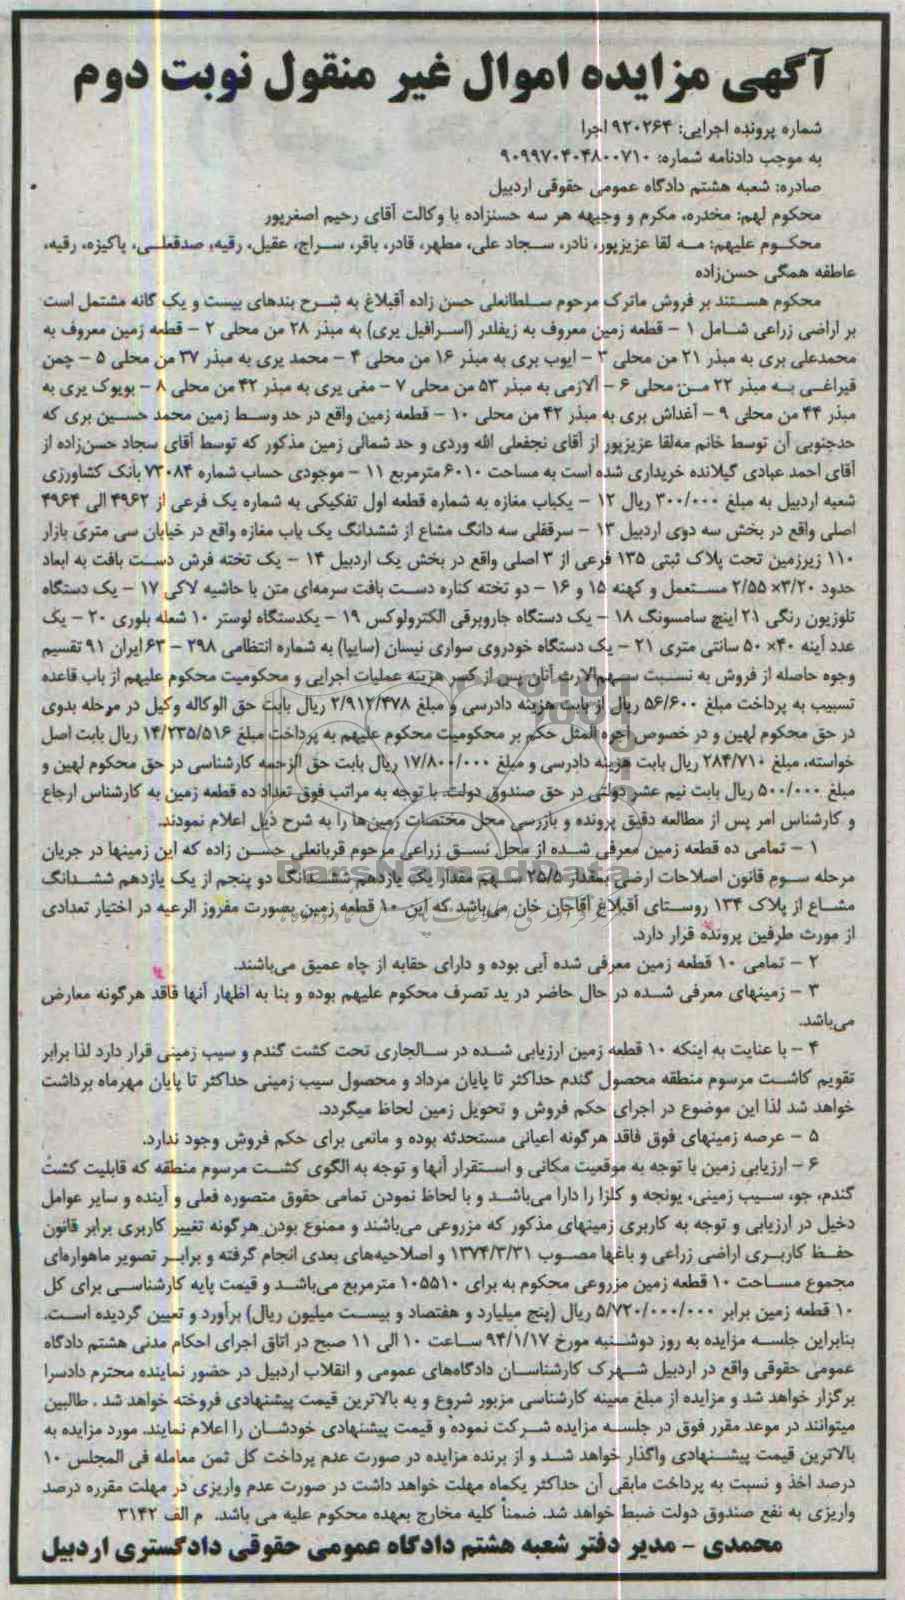 آگهی مزایده اموال غیر منقول نوبت دوم
شماره پرونده اجرایی: ۹۲۰۲۶۴ اجرا
به موجب دادنامه شماره: ۹۰۹۹۷۰۴۰۴۸۰۰۷۱۰
صادره: شعبه هشتم دادگاه عمومی حقوقی اردبیل
محکوم لهم: مخدره، مکرم و وجیهه هر سه حسنزاده با وکالت آقای رحیم اصغرپور
محکـوم علیهم: مـه لقا عزیزپور، نادر، سـجاد علی، مطهر، قادر، باقر، سـراج، عقیل، رقیه، صدقعلـی، پاکیزه، رقیه،
عاطفه همگی حسن‌زاده
محکوم هستند بر فروش ماترک مرحوم سـلطانعلی حسن زاده آقبلاغ به شـرح بندهای بیست و یک گانه مشتمل است
بر اراضی زراعی شـامل ۱ – قطعه زمین معروف به زیفلدر (اسـرافیل یری) به مبذر ۲۸ من محلی ۲ – قطعه زمین معروف به
محمدعلی بری به مبذر ۲۱ من محلی ۳ – ایوب بری به مبذر ۱۶ من محلی ۴ – محمد یری به مبذر ۳۷ من محلی ۵ – چمن
قیراغـی بـه مبذر ۲۲ مـن محلی ۶ – آلازمی به مبذر ۵۳ من محلی ۷ – مغی یری به مبذر ۴۲ من محلی ۸ – بویوک یری به
مبذر ۴۴ من محلی ۹ – آغداش بری به مبذر ۴۲ من محلی ۱۰ – قطعه زمین واقع در حد وسـط زمین محمد حسـین بری که
حدجنوبی آن توسط خانم مه‌لقا عزیزپور از آقای نجفعلی الله وردی و حد شمالی زمین مذکور که توسط آقای سجاد حسن‌زاده از
آقای احمد عبادی گیلانده خریداری شده است به مساحت ۶۰۱۰ مترمربع ۱۱ – موجودی حساب شماره ۷۳۰۸۴ بانک کشاورزی
شعبه اردبیل به مبلغ ۳۰۰/۰۰۰ ریال ۱۲ – یکباب مغازه به شماره قطعه اول تفکیکی به شماره یک فرعی از ۴۹۶۲ الی ۴۹۶۴
اصلی واقع در بخش سه دوی اردبیل ۱۳ – سرقفلی سه دانگ مشاع از ششدانگ یک باب مغازه واقع در خیابان سی متری بازار
۱۱۰ زیرزمین تحت پلاک ثبتی ۱۳۵ فرعی از ۳ اصلی واقع در بخش یک اردبیل ۱۴ – یک تخته فرش دسـت بافت به ابعاد
حدود ۳/۲۰×۲/۵۵ مسـتعمل و کهنه ۱۵ و ۱۶ – دو تخته کناره دسـت بافت سرمه‌ای متن با حاشیه لاکی ۱۷ – یک دستگاه
تلوزیون رنگی ۲۱ اینچ سامسونگ ۱۸ – یک دستگاه جاروبرقی الکترولوکس ۱۹ – یکدستگاه لوستر ۱۰ شعله بلوری ۲۰ – یک
عدد آینه ۴۰× ۵۰ سانتی متری ۲۱ – یک دستگاه خودروی سواری نیسان (سایپا) به شماره انتظامی ۲۹۸ – ۶۳ ایران ۹۱ تقسیم
وجوه حاصله از فروش به نسـبت سـهم‌الارث آنان پس از کسر هزینه عملیات اجرایی و محکومیت محکوم علیهم از باب قاعده
تسبیب به پرداخت مبلغ ۵۶/۶۰۰ ریال از بابت هزینه دادرسی و مبلغ ۲/۹۱۲/۴۷۸ ریال بابت حق الوکاله وکیل در مرحله بدوی
در حق محکوم لهین و در خصوص اجره المثل حکم بر محکومیت محکوم علیهم به پرداخت مبلغ ۱۴/۲۳۵/۵۱۶ ریال بابت اصل
خواسته، مبلغ ۲۸۴/۷۱۰ ریال بابت هزینه دادرسی و مبلغ ۱۷/۸۰۰/۰۰۰ ریال بابت حق الزحمه کارشناسی در حق محکوم لهین و
مبلغ ۵۰۰/۰۰۰ ریال بابت نیم عشر دولتی در حق صندوق دولت. با توجه به مراتب فوق تعداد ده قطعه زمین به کارشناس ارجاع
و کارشناس امر پس از مطالعه دقیق پرونده و بازرسی محل مختصات زمین‌ها را به شرح ذیل اعلام نمودند.
۱ – تمامی ده قطعه زمین معرفی شده از محل نسـق زراعی مرحوم قربانعلی حسـن زاده که این زمینها در جریان
مرحله سـوم قانون اصلاحات ارضی بمقدار ۲۵/۵ سـهم مقدار یک یازدهم ششـدانگ دو پنجم از یک یازدهم ششـدانگ
مشـاع از پلاک ۱۳۴ روستای آقبلاغ آقاجان خان می‌باشد که این ۱۰ قطعه زمین بصورت مفروز الرعیه در اختیار تعدادی
از مورث طرفین پرونده قرار دارد.
۲ – تمامی ۱۰ قطعه زمین معرفی شده آبی بوده و دارای حقابه از چاه عمیق می‌باشند.
۳ – زمینهای معرفی شـده در حال حاضر در ید تصرف محکوم علیهم بوده و بنا به اظهار آنها فاقد هرگونه معارض
می‌باشد.
۴ – با عنایت به اینکه ۱۰ قطعه زمین ارزیابی شـده در سـالجاری تحت کشت گندم و سیب زمینی قرار دارد لذا برابر
تقویم کاشـت مرسوم منطقه محصول گندم حداکثر تا پایان مرداد و محصول سیب زمینی حداکثر تا پایان مهرماه برداشت
خواهد شد لذا این موضوع در اجرای حکم فروش و تحویل زمین لحاظ میگردد.
۵ – عرصه زمینهای فوق فاقد هرگونه اعیانی مستحدثه بوده و مانعی برای حکم فروش وجود ندارد.
۶ – ارزیابی زمین با توجه به موقعیت مکانی و اسـتقرار آنها و توجه به الگوی کشـت مرسوم منطقه که قابلیت کشت
گندم، جو، سـیب زمینی، یونجه و کلزا را دارا می‌باشـد و با لحاظ نمودن تمامی حقوق متصوره فعلی و آینده و سایر عوامل
دخیل در ارزیابی و توجه به کاربری زمینهای مذکور که مزروعی می‌باشند و ممنوع بودن هرگونه تغییر کاربری برابر قانون
حفـظ کاربـری اراضی زراعی و باغها مصـوب ۱۳۷۴/۳/۳۱ و اصلاحیه‌های بعدی انجام گرفته و برابـر تصویر ماهواره‌ای
مجموع مسـاحت ۱۰ قطعه زمین مزروعی محکوم به برای ۱۰۵۵۱۰ مترمربع می‌باشـد و قیمت پایه کارشناسـی برای کل
۱۰ قطعه زمین برابر ۵/۷۲۰/۰۰۰/۰۰۰ ریال (پنج میلیارد و هفتصاد و بیسـت میلیون ریال) برآورد و تعیین گردیده اسـت.
بنابراین جلسـه مزایده به روز دوشـنبه مورخ ۹۴/۱/۱۷ سـاعت ۱۰ الی ۱۱ صبح در اتاق اجرای احکام مدنی هشتم دادگاه
عمومی حقوقی واقع در اردبیل شـهرک کارشناسـان دادگاه‌های عمومی و انقلاب اردبیل در حضور نماینده محترم دادسرا
برگزار خواهد شد و مزایده از مبلغ معینه کارشناسی مزبور شروع و به بالاترین قیمت پیشنهادی فروخته خواهد شد . طالبین
میتوانند در موعد مقرر فوق در جلسـه مزایده شـرکت نموده و قیمت پیشنهادی خودشـان را اعلام نمایند. مورد مزایده به
بالاترین قیمت پیشـنهادی واگذار خواهد شـد و از برنده مزایده در صورت عدم پرداخت کل ثمن معامله فی المجلس ۱۰
درصد اخذ و نسبت به پرداخت مابقی آن حداکثر یکماه مهلت خواهد داشت در صورت عدم واریزی در مهلت مقرره درصد
واریزی به نفع صندوق دولت ضبط خواهد شد. ضمناً کلیه مخارج بعهده محکوم علیه می باشد. م الف ۳۱۴۲
محمدی – مدیر دفتر شعبه هشتم دادگاه عمومی حقوقی دادگستری اردبیل
ParsNamadData